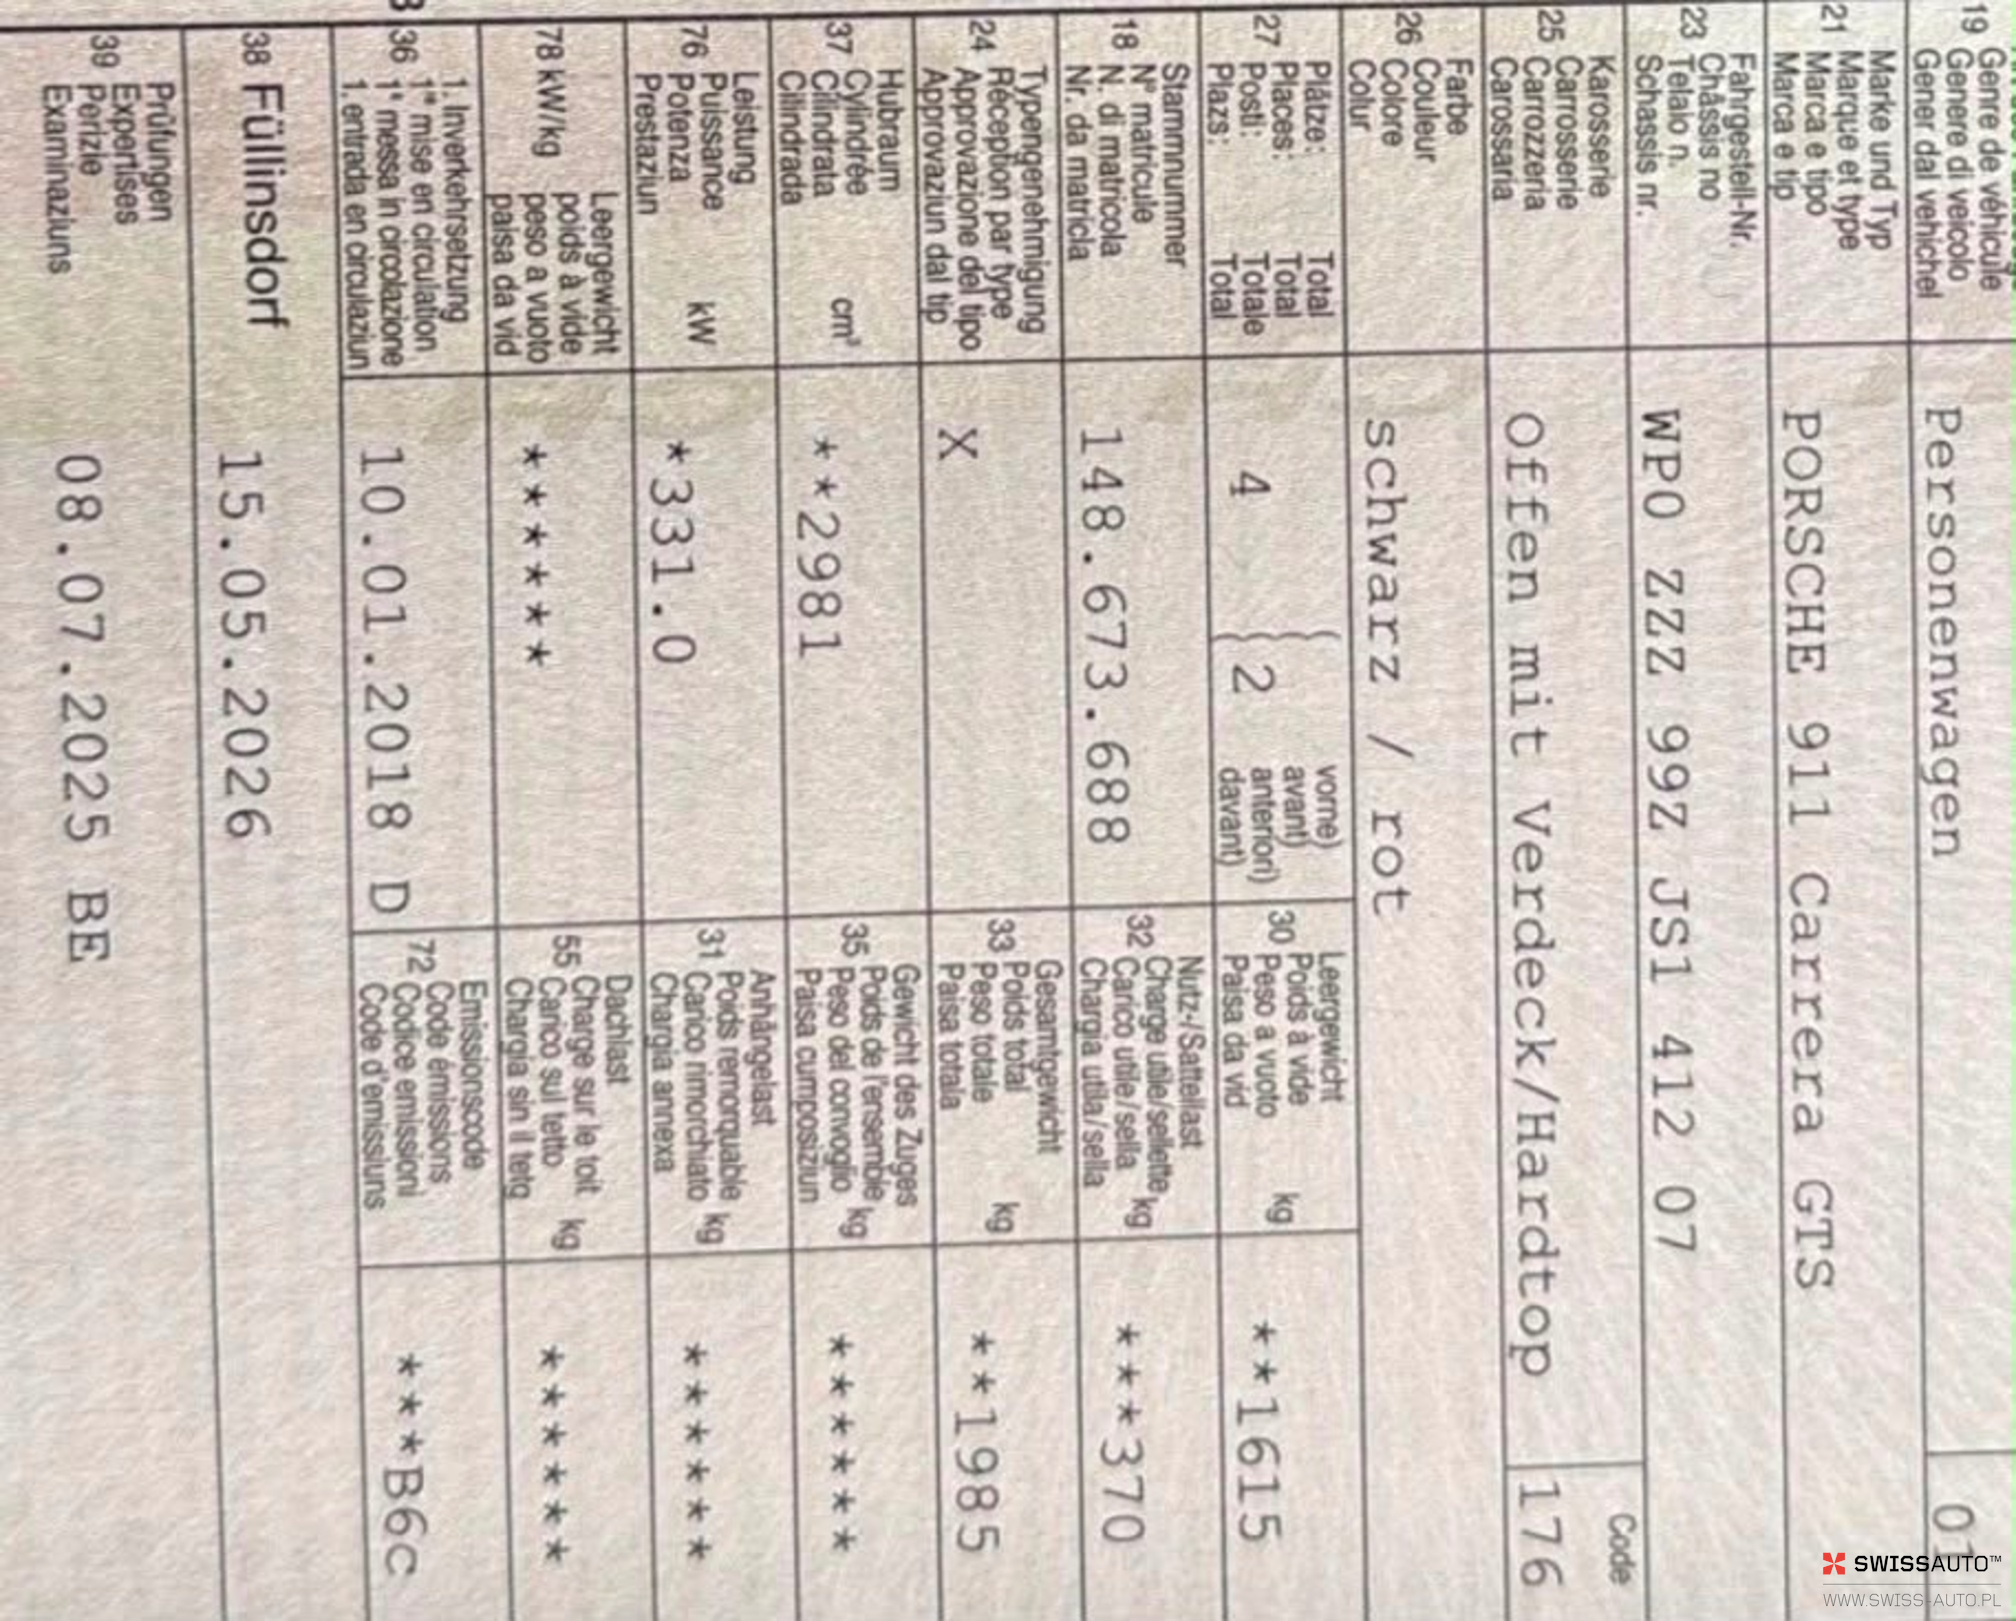 19 Genre de véhicule
Genere di veicolo
Gener dal vehichel
Personenwagen
01
Marke und Typ
21 Marque et type
Marca e tipo
Marca e tip
PORSCHE 911 Carrera GTS
Fahrgestell-Nr.
23 Châssis no
Telaio n.
Schassis nr.
WP0 ZZZ 99Z JS1 412 07
Karosserie
25 Carrosserie
Carrozzeria
Carossaria
Offen mit Verdeck/Hardtop
Code
176
Farbe
26 Couleur
Colore
Colur
schwarz / rot
Plätze: Total
27 Places: Total
Posti: Totale
Plazs: Total
4
2
vorne)
avant)
anteriori)
davant)
Leergewicht
30 Poids à vide
Peso a vuoto
Paisa da vid
kg
**1615
Stammnummer
18 N° matricule
N. di matricola
Nr. da matricla
148.673.688
Nutz-/Sattellast
32 Charge utile/sellette
Carico utile/sella
Chargia utila/sella
kg
***370
Typengenehmigung
24 Réception par type
Approvazione del tipo
Approvaziun dal tip
X
Gesamtgewicht
33 Poids total
Peso totale
Paisa totala
kg
**1985
Hubraum
37 Cylindrée
Cilindrata
Cilindrada
cm³
**2981
Gewicht des Zuges
35 Poids de l'ensemble
Peso del convoglio
Paisa cumposiziun
kg
******
Leistung
76 Puissance
Potenza
Prestaziun
kW
*331.0
Anhängelast
31 Poids remorquable
Carico rimorchiato
Chargia annexa
kg
******
78 kW/kg
Leergewicht
poids à vide
peso a vuoto
paisa da vid
******
Dachlast
55 Charge sur le toit
Carico sul tetto
Chargia sin il tetg
kg
******
1. Inverkehrsetzung
36 1re mise en circulation
1a messa in circolazione
1. entrada en circulaziun
10.01.2018 D
Emissionscode
72 Code émissions
Codice emissioni
Code d'emissiuns
***B6c
38 Füllinsdorf
15.05.2026
Prüfungen
39 Expertises
Perizie
Examinaziuns
08.07.2025 BE
SWISSAUTO™
WWW.SWISS-AUTO.PL